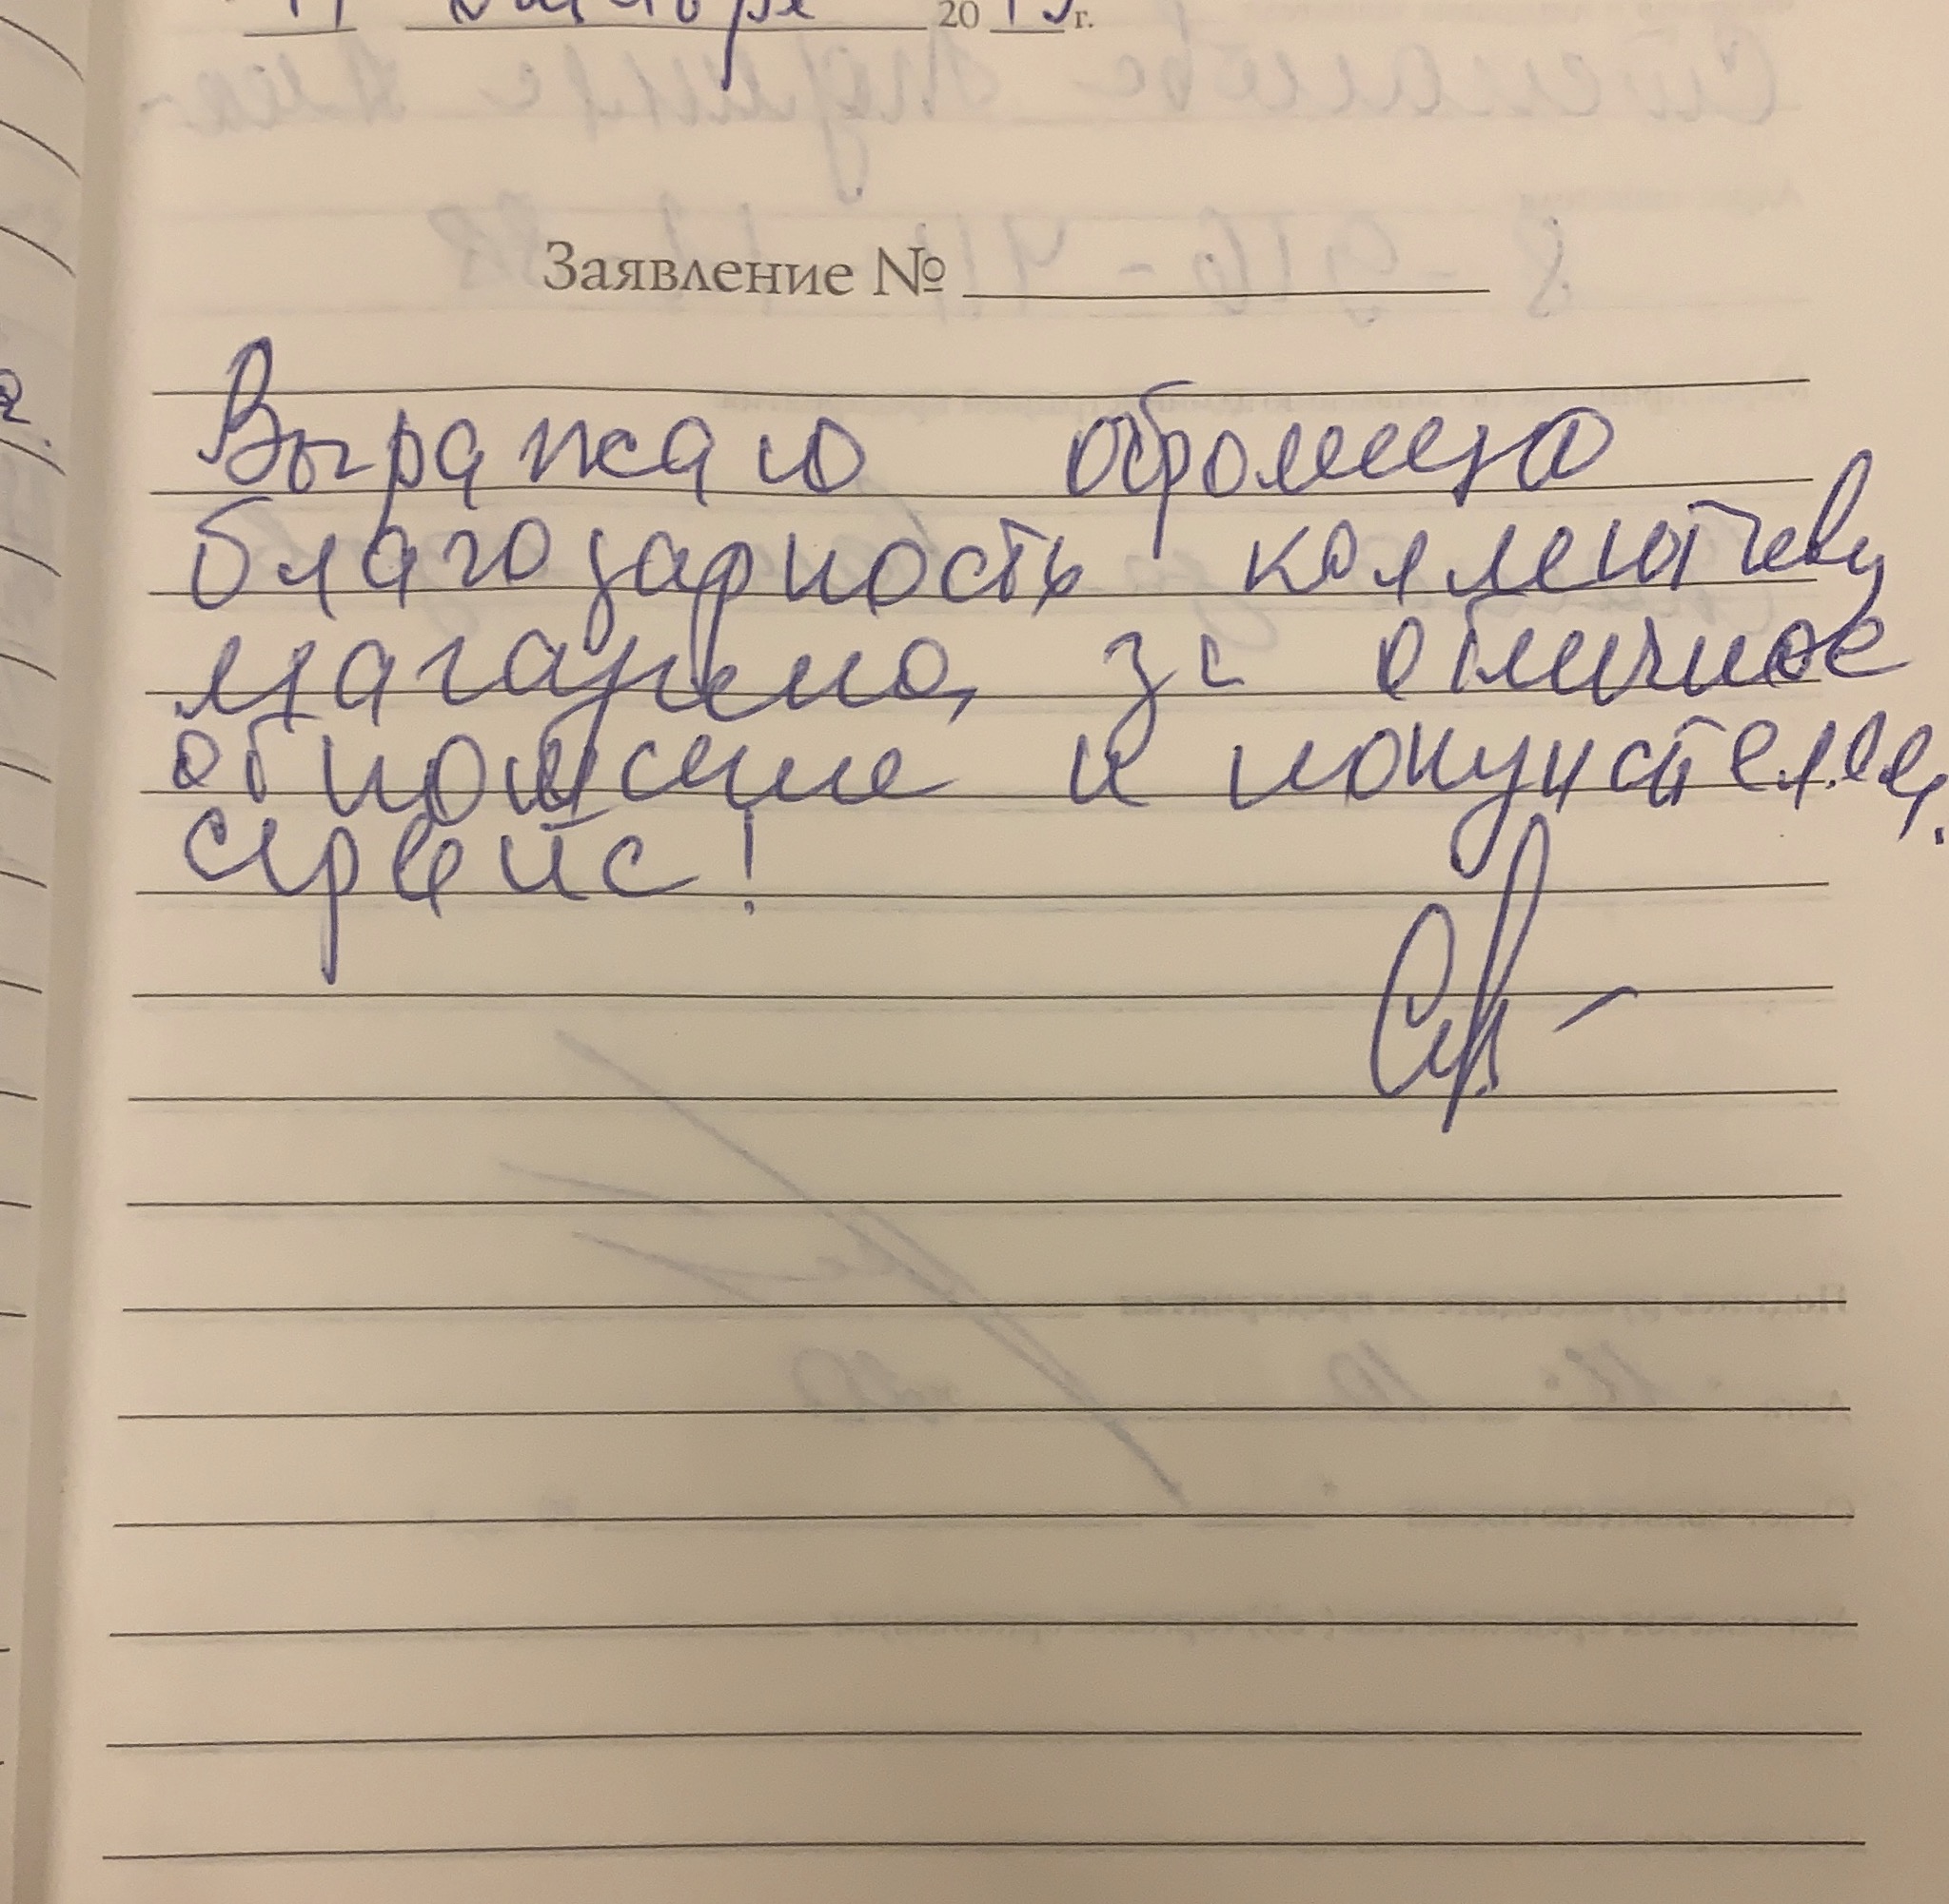 20 г.
Заявление №
Выражаю огромную
благодарность коллективу
магазина, за отличное
отношение к покупателям,
сервис!